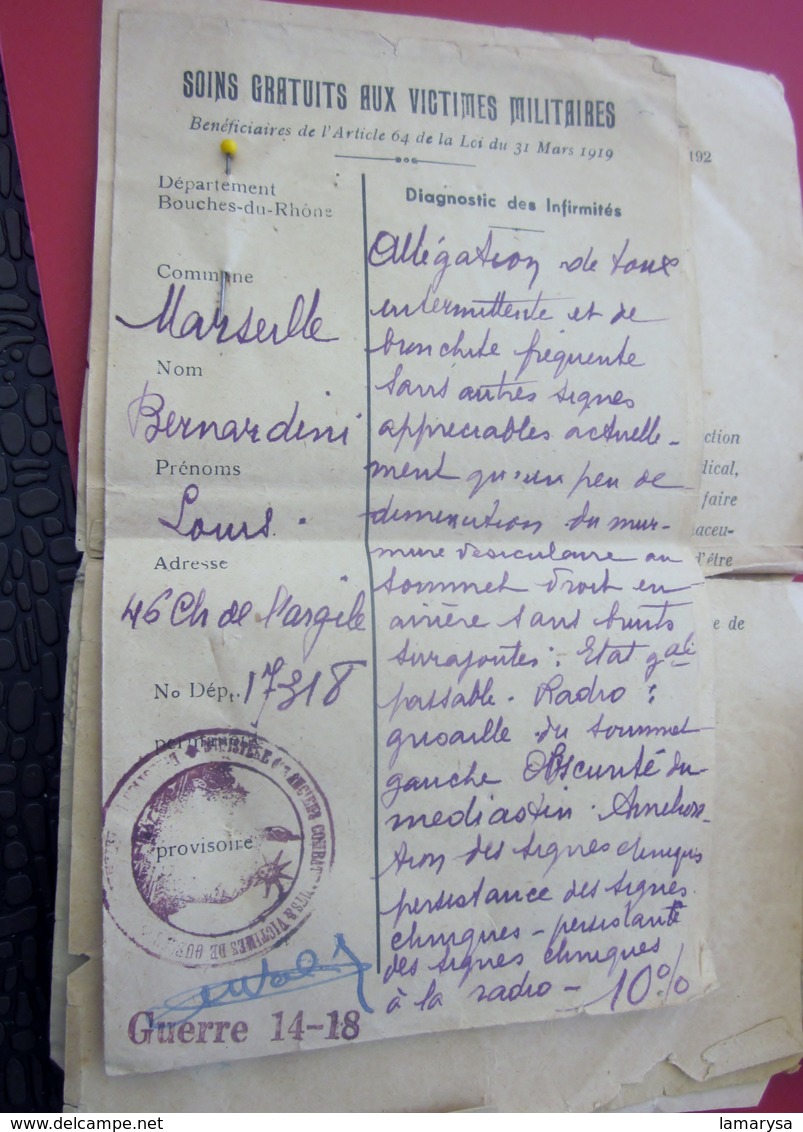 SOINS GRATUITS AUX VICTIMES MILITAIRES
Bénéficiaires de l'Article 64 de la Loi du 31 Mars 1919
Département
Bouches-du-Rhône
Commune
Marseille
Nom
Bernardini
Prénoms
Louis.
Adresse
46 Ch de l'argile
No Dépt. 17318
permanente
provisoire
MINISTÈRE DES ANCIENS COMBATTANTS & VICTIMES DE GUERRE
Guerre 14-18
Diagnostic des Infirmités
Allégation de toux
intermittente et de
bronchite fréquente
sans autres signes
appréciables actuelle-
ment qu'un peu de
diminution du mur-
mure vésiculaire au
sommet droit en
arrière sans bruits
surajoutés : Etat gal
passable. Radio :
grisaille du sommet
gauche Obscurité du
mediastin. Améliora-
tion des signes cliniques
persistance des signes
cliniques - persistante
des signes cliniques
à la radio - 10%
192
ction
dical,
faire
naceu-
d'être
e de
delcampe.net
lamarysa